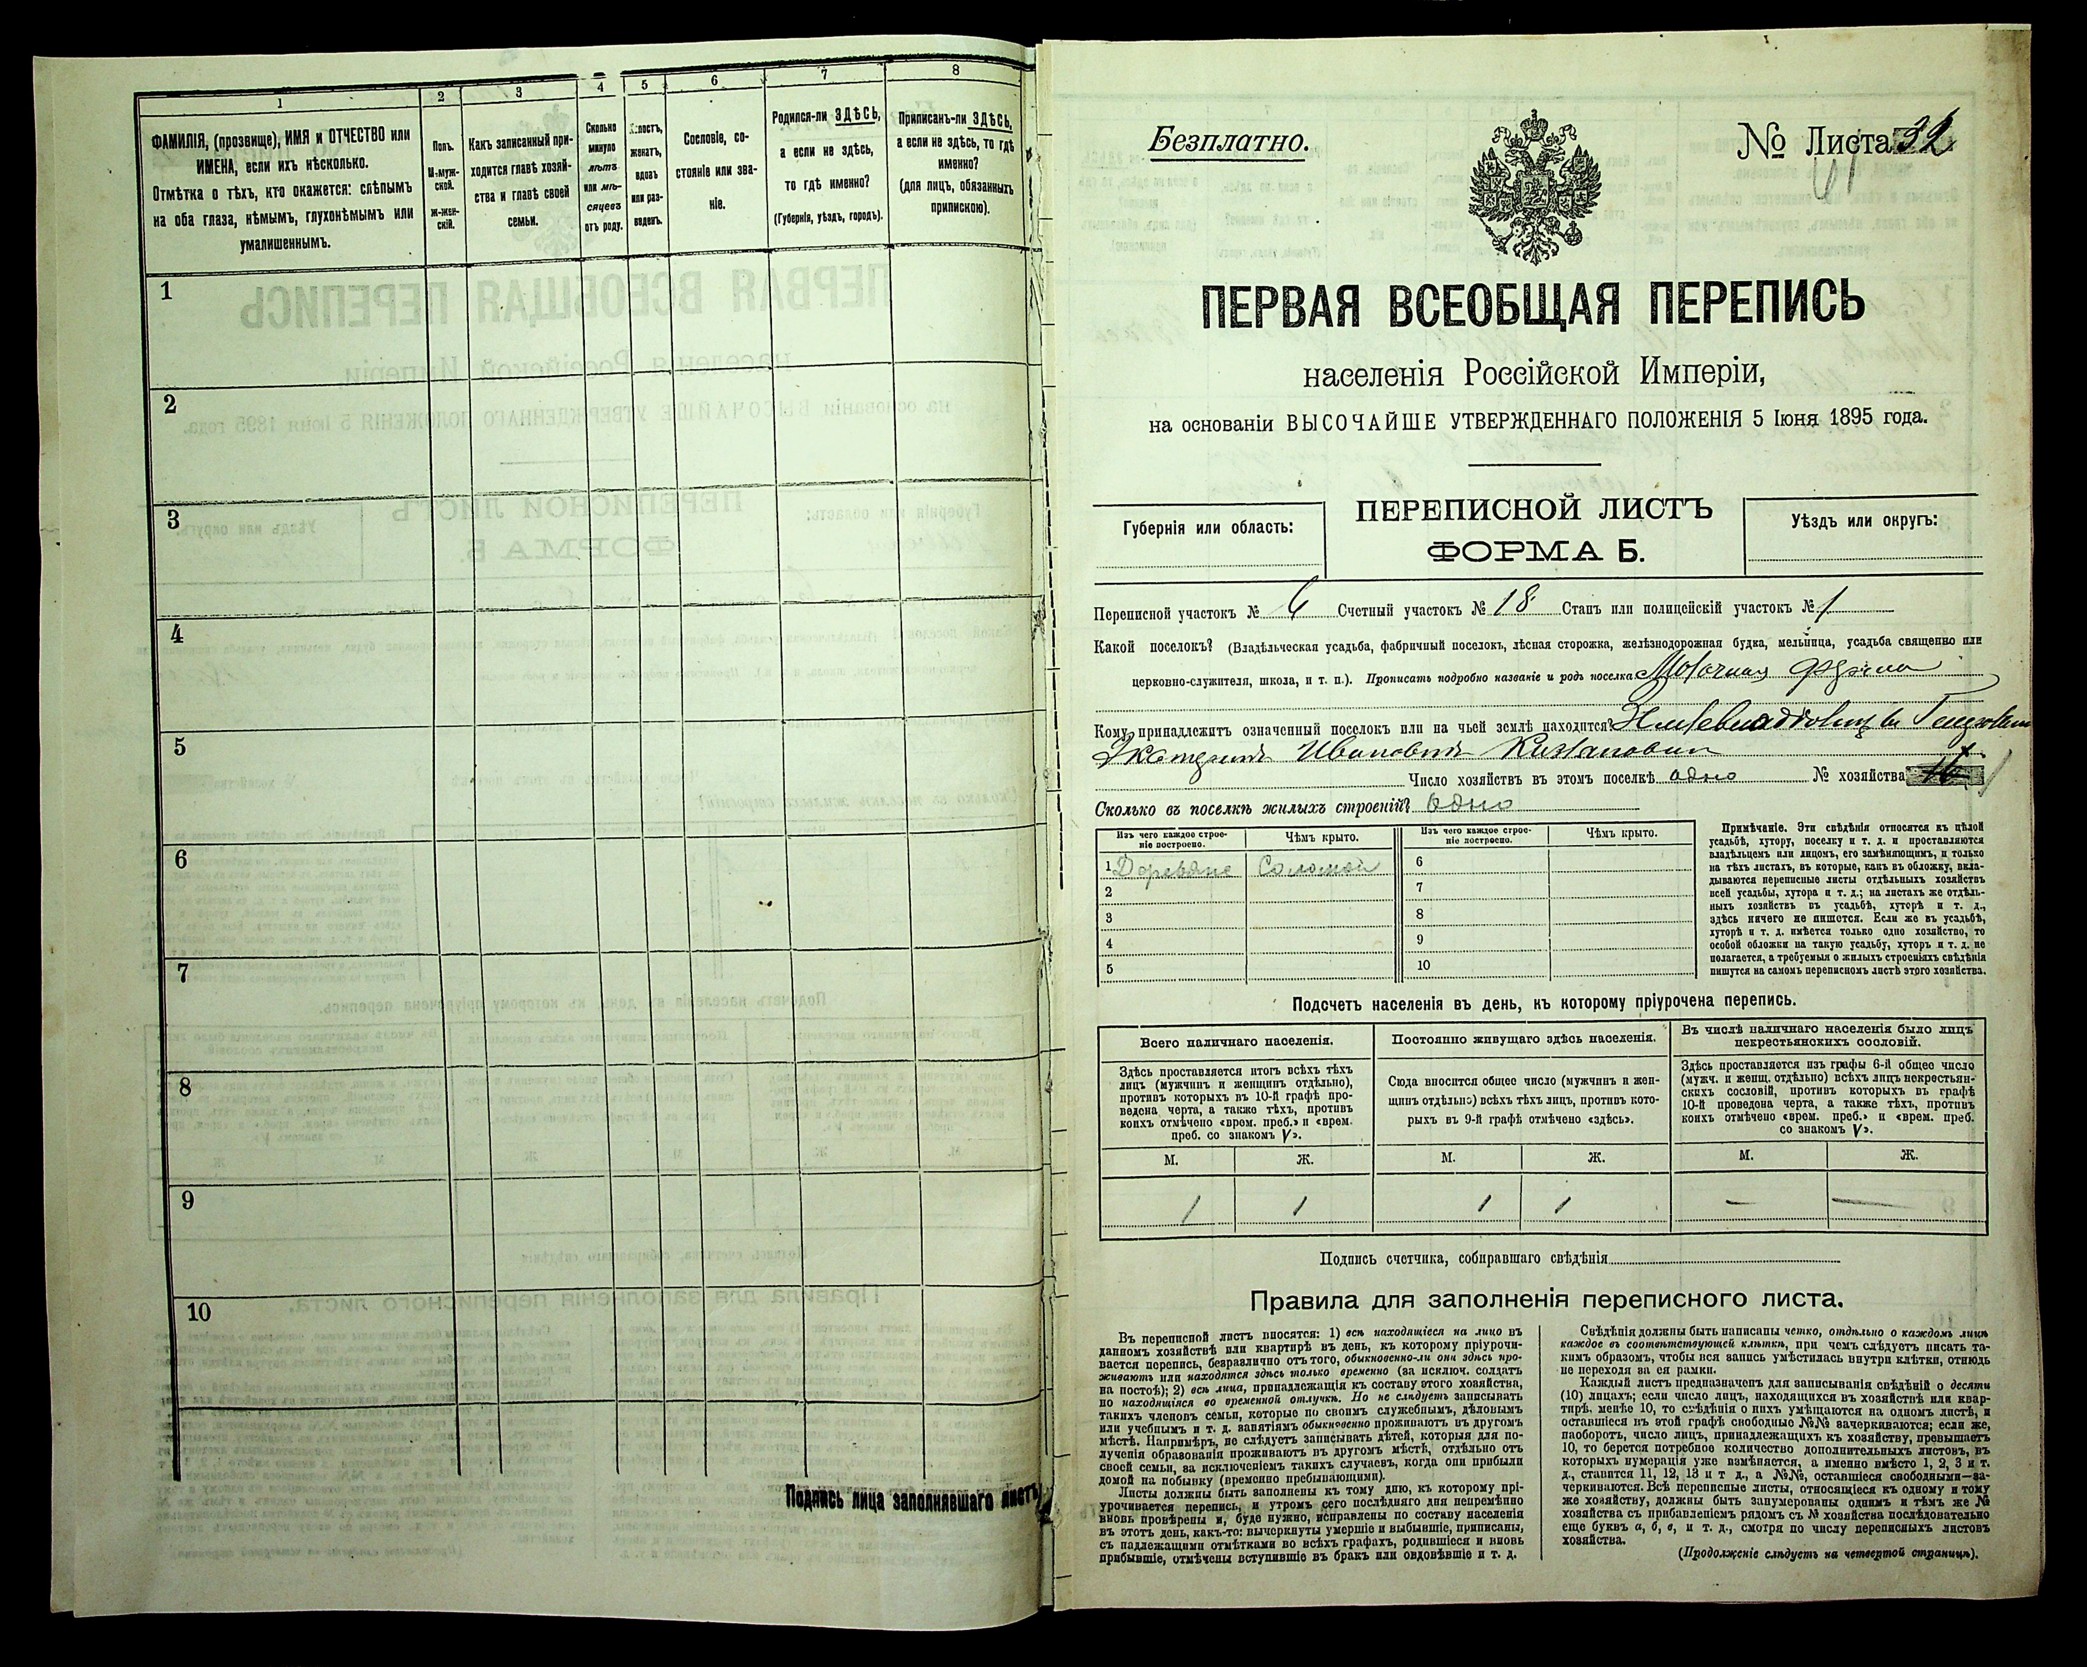 1
2
3
4
5
6
7
8
ФАМИЛІЯ, (прозвище), ИМЯ и ОТЧЕСТВО или
ИМЕНА, если ихъ нѣсколько.
Отмѣтка о тѣхъ, кто окажется: слѣпымъ
на оба глаза, нѣмымъ, глухонѣмымъ или
умалишеннымъ.
Полъ.
М-муж-
ской.
ж-жен-
скій.
Какъ записанный при-
ходится главѣ хозяй-
ства и главѣ своей
семьи.
Сколько
минуло
лѣтъ
или мѣ-
сяцевъ
отъ роду.
Холостъ,
женатъ,
вдовъ
или раз-
веденъ.
Сословіе, со-
стояніе или зва-
ніе.
Родился-ли ЗДѢСЬ,
а если не здѣсь,
то гдѣ именно?
(Губернія, уѣздъ, городъ).
Приписанъ-ли ЗДѢСЬ,
а если не здѣсь, то гдѣ
именно?
(для лицъ, обязанныхъ
припискою).
1
2
3
4
5
6
7
8
9
10
Подпись лица заполнявшаго листъ
Безплатно.
№ Листа 32
ПЕРВАЯ ВСЕОБЩАЯ ПЕРЕПИСЬ
населенія Россійской Имперіи,
на основаніи ВЫСОЧАЙШЕ УТВЕРЖДЕННАГО ПОЛОЖЕНІЯ 5 Іюня 1895 года.
Губернія или область:
ПЕРЕПИСНОЙ ЛИСТЪ
ФОРМА Б.
Уѣздъ или округъ:
Переписной участокъ № 6 Счетный участокъ № 18 Станъ или полицейскій участокъ № 1
Какой поселокъ? (Владѣльческая усадьба, фабричный поселокъ, лѣсная сторожка, желѣзнодорожная будка, мельница, усадьба священно или
церковно-служителя, школа, и т. п.). Прописать подробно названіе и родъ поселка Молочная ферма
Кому принадлежитъ означенный поселокъ или на чьей землѣ находится?
Ивановнѣ
Число хозяйствъ въ этомъ поселкѣ одно № хозяйства 1
Сколько въ поселкѣ жилыхъ строеній? Одно
Изъ чего каждое строе-
ніе построено.
Чѣмъ крыто.
Изъ чего каждое строе-
ніе построено.
Чѣмъ крыто.
1 Деревяне Соломой 6
2 7
3 8
4 9
5 10
Примѣчаніе. Эти свѣдѣнія относятся къ цѣлой
усадьбѣ, хутору, поселку и т. д. и проставляются
владѣльцемъ или лицомъ, его замѣняющимъ, и только
на тѣхъ листахъ, въ которые, какъ въ обложку, вкла-
дываются переписные листы отдѣльныхъ хозяйствъ
всей усадьбы, хутора и т. д.; на листахъ же отдѣль-
ныхъ хозяйствъ въ усадьбѣ, хуторѣ и т. д.,
здѣсь ничего не пишется. Если же въ усадьбѣ,
хуторѣ и т. д. имѣется только одно хозяйство, то
особой обложки на такую усадьбу, хуторъ и т. д. не
полагается, а требуемыя о жилыхъ строеніяхъ свѣдѣнія
пишутся на самомъ переписномъ листѣ этого хозяйства.
Подсчетъ населенія въ день, къ которому пріурочена перепись.
Всего наличнаго населенія.
Постоянно живущаго здѣсь населенія.
Въ числѣ наличнаго населенія было лицъ
некрестьянскихъ сословій.
Здѣсь проставляется итогъ всѣхъ тѣхъ
лицъ (мужчинъ и женщинъ отдѣльно),
противъ которыхъ въ 10-й графѣ про-
ведена черта, а также тѣхъ, противъ
коихъ отмѣчено «врем. преб.» и «врем.
преб. со знакомъ V».
Сюда вносится общее число (мужчинъ и жен-
щинъ отдѣльно) всѣхъ тѣхъ лицъ, противъ кото-
рыхъ въ 9-й графѣ отмѣчено «здѣсь».
Здѣсь проставляется изъ графы 6-й общее число
(мужч. и женщ. отдѣльно) всѣхъ лицъ некрестьян-
скихъ сословій, противъ которыхъ въ графѣ
10-й проведена черта, а также тѣхъ, противъ
коихъ отмѣчено «врем. преб.» и «врем. преб.
со знакомъ V».
М. Ж. М. Ж. М. Ж.
1 1 1 1 — —
Подпись счетчика, собиравшаго свѣдѣнія
Правила для заполненія переписного листа.
Въ переписной листъ вносятся: 1) всѣ находящіеся на лицо въ
данномъ хозяйствѣ или квартирѣ въ день, къ которому пріурочи-
вается перепись, безразлично отъ того, обыкновенно-ли они здѣсь про-
живаютъ или находятся здѣсь только временно (за исключ. солдатъ
на постоѣ); 2) всѣ лица, принадлежащія къ составу этого хозяйства,
но находящіяся во временной отлучкѣ. Но не слѣдуетъ записывать
такихъ членовъ семьи, которые по своимъ служебнымъ, дѣловымъ
или учебнымъ и т. д. занятіямъ обыкновенно проживаютъ въ другомъ
мѣстѣ. Напримѣръ, не слѣдуетъ записывать дѣтей, которыя для по-
лученія образованія проживаютъ въ другомъ мѣстѣ, отдѣльно отъ
своей семьи, за исключеніемъ такихъ случаевъ, когда они прибыли
домой на побывку (временно пребывающими).
Листы должны быть заполнены къ тому дню, къ которому прі-
урочивается перепись, и утромъ сего послѣдняго дня непремѣнно
вновь провѣрены и, буде нужно, исправлены по составу населенія
въ этотъ день, какъ-то: вычеркнуты умершіе и выбывшіе, приписаны,
съ надлежащими отмѣтками во всѣхъ графахъ, родившіеся и вновь
прибывшіе, отмѣчены вступившіе въ бракъ или овдовѣвшіе и т. д.
Свѣдѣнія должны быть написаны четко, отдѣльно о каждомъ лицѣ
каждое въ соотвѣтствующей клѣткѣ, при чемъ слѣдуетъ писать та-
кимъ образомъ, чтобы вся запись умѣстилась внутри клѣтки, отнюдь
не переходя за ея рамки.
Каждый листъ предназначенъ для записыванія свѣдѣній о десяти
(10) лицахъ; если число лицъ, находящихся въ хозяйствѣ или квар-
тирѣ, менѣе 10, то свѣдѣнія о нихъ умѣщаются на одномъ листѣ, и
оставшіеся въ этой графѣ свободные №№ зачеркиваются; если же,
наоборотъ, число лицъ, принадлежащихъ къ хозяйству, превышаетъ
10, то берется потребное количество дополнительныхъ листовъ, въ
которыхъ нумерація уже измѣняется, а именно вмѣсто 1, 2, 3 и т.
д., ставится 11, 12, 13 и т д., а №№, оставшіеся свободными—за-
черкиваются. Всѣ переписные листы, относящіеся къ одному и тому
же хозяйству, должны быть занумерованы однимъ и тѣмъ же №
хозяйства съ прибавленіемъ рядомъ съ № хозяйства послѣдовательно
еще буквъ а, б, в, и т. д., смотря по числу переписныхъ листовъ
хозяйства.
(Продолженіе слѣдуетъ на четвертой страницѣ).